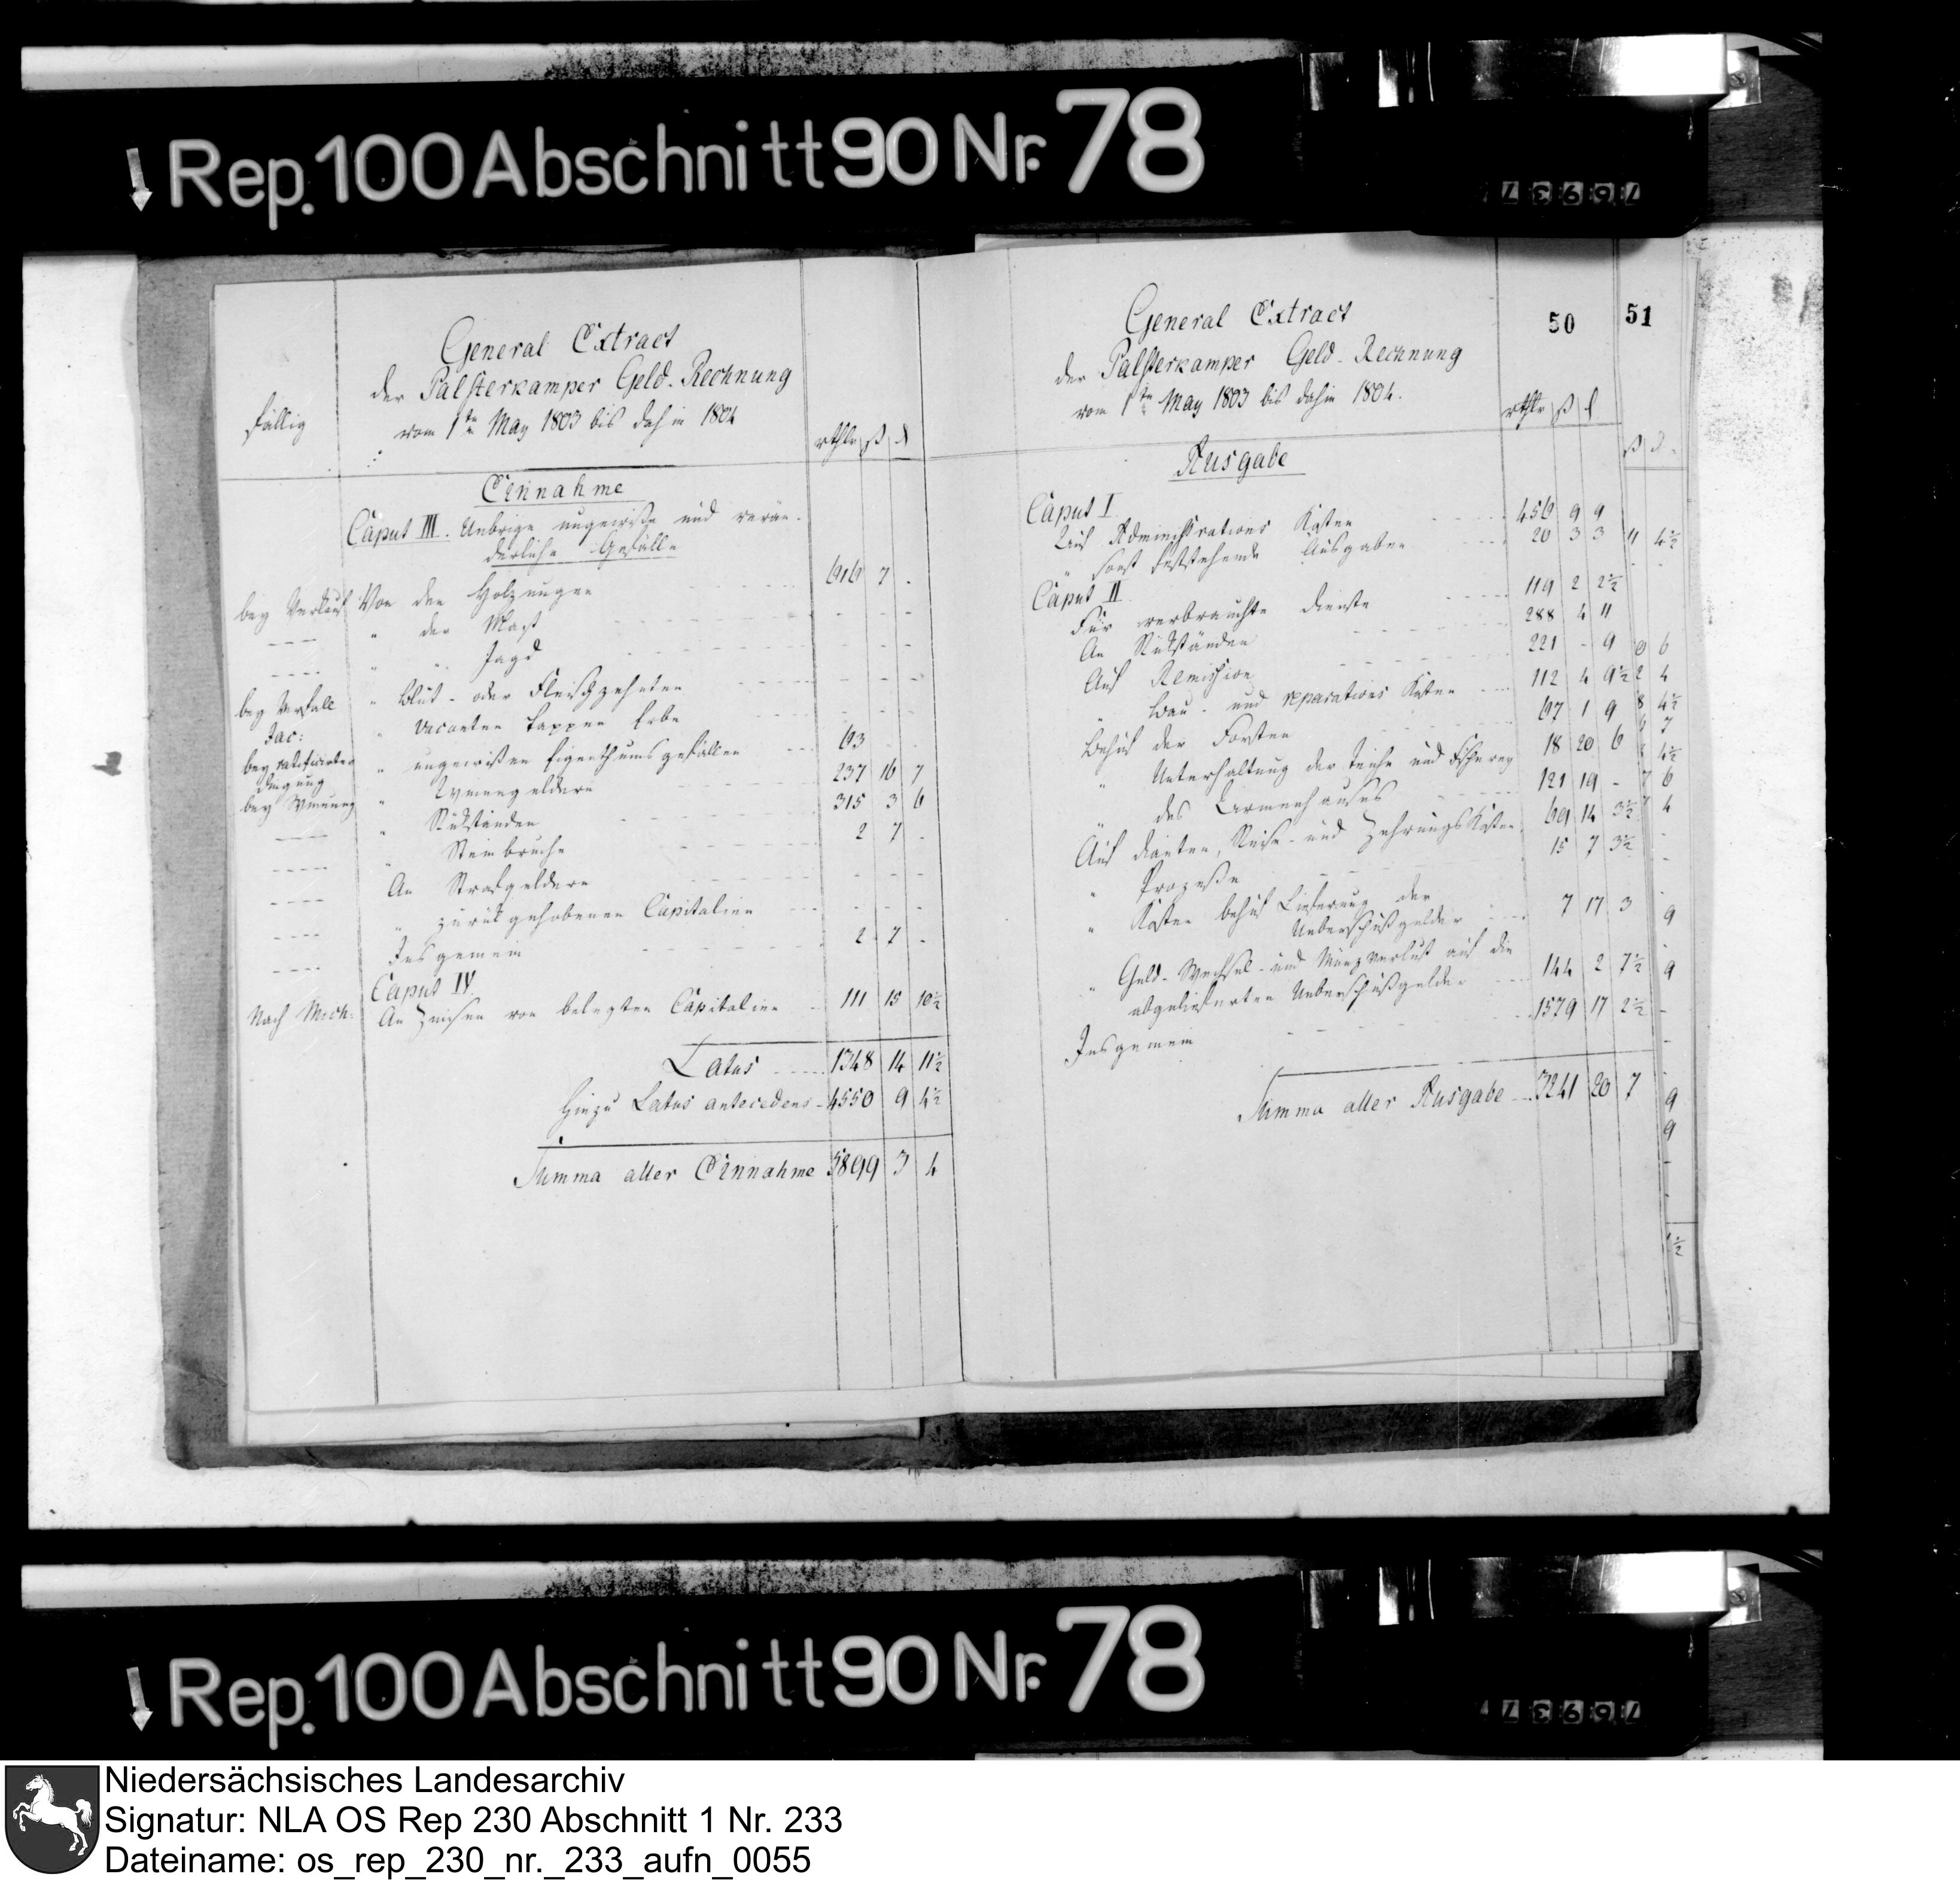 Rep. 100 Abschnitt 90 Nr. 78
76937
fällig
General Extract
der Palsterkamper Geld-Rechnung
vom 1te May 1803 bis dahin 1804
rthlr ß d
Einnahme
Caput III. Uebrige ungewiße und verän-
derliche Gefälle
bey Verkauf Von den Holzungen 616 7 -
" der Mast
" " Jagd
bey Verfall " Blut- oder Fleischzehnten
Jac: " vacanten Cappen Erbe
bey ratificirter Dingung " ungewißen Eigenthumsgefällen 63
bey Winnung " 237 16 7
" Rükständen 315 3 6
" Steinbruche 2 7 -
An Strafgeldern
" zurükgehobenen Capitalien
Insgemein 2 7 -
Caput IV
Nach Mich: An Zinsen von belegten Capitalien 111 15 10½
Latus 1348 14 11½
Hinzu Latus antecedens 4550 9 4½
Summa aller Einnahme 5899 3 4
50
51
General Extract
der Palsterkamper Geld-Rechnung
vom 1te May 1803 bis dahin 1804.
rthlr ß d
ß d
Ausgabe
Caput I
Auf Administrations Kosten 456 9 9
" sonst feststehende Ausgaben 20 3 3
Caput II
Für verbrauchte Dienste 119 2 2½
An Rükständen 288 4 11
Auf Remission 221 - 9
" Bau- und reparations Kosten 112 4 9½
Behuf der Forsten 67 1 9
" Unterhaltung der Teiche und Fischerey 18 20 6
" des Armenhauses 121 19 -
Auf Diaeten, Reise- und Zehrungskosten 69 14 3½
" Prozeße 15 7 3½
" Kosten behuf Lieferung der
Ueberschußgelder 7 17 3
" Geld-Wechsel- und Münzverlust auf die
abgelieferten Ueberschußgelder 144 2 7½
Insgemein 1579 17 2½
Summa aller Ausgabe 3241 20 7
Rep. 100 Abschnitt 90 Nr. 78
76937
Niedersächsisches Landesarchiv
Signatur: NLA OS Rep 230 Abschnitt 1 Nr. 233
Dateiname: os_rep_230_nr._233_aufn_0055